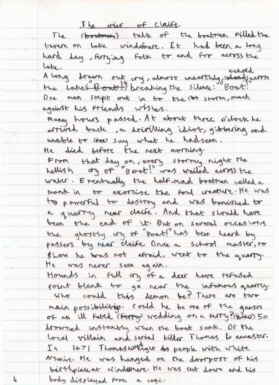 The crier of Claife.
The (boatman) tale of the boatman filled the
tavern on lake windomere. It had been a long
hard day, ferrying folk to and for across the
lake.
A long drawn out cry, almost unearthly, echoed across
the lakes breaking the silence: Boat!
One man slept out in to the storm, much
against his friends wishes.
Many hours passed. At about three o'clock he
arrived back, a dribbling idiot, gibbering and
unable to say what he had seen.
He died before the next morning.
From that day on, every stormy night the
hellish cry of "Boat!" was wailed across the
water. Eventually the half-mad boatmen called a
monk in to exorcise the foul creature. He was
to powerful to destroy and was banished to
a quarry near claife. And that should have
been the end of it. But on several occasions
the ghostly cry of Boat! has been heard by
passers by near claife. Once a school master, to
show he was not afraid, went to the quarry.
He was never seen again.
Hounds in full cry of a deer have refused
point blank to go near the infamous quarry.
Who could this demon be? There are two
main possibilities. Could he be one of the guests
of an ill fated wedding on a ferry? 50
drowned instantly when the boat sank. Or the
local villain and serial killer Thomas Lancaster.
In 1671 Thomas killed 8 people with white
Arsenic. He was hanged on the doorpost of his
birthplace at windomere. He was cut down and his
body displayed from a cage.